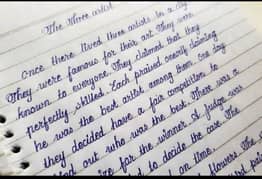 The three artist
Once there lived three artists. In a city
They were famous for their art. They were
known to everyone. They claimed that they
perfectly skilled. Each praised onerly claiming
he was the best artist among them. one day
they decided have a fair competition to
out who was the best. There was a
for the winner. A judge was
to decide the case. The
on time.
flowers. The